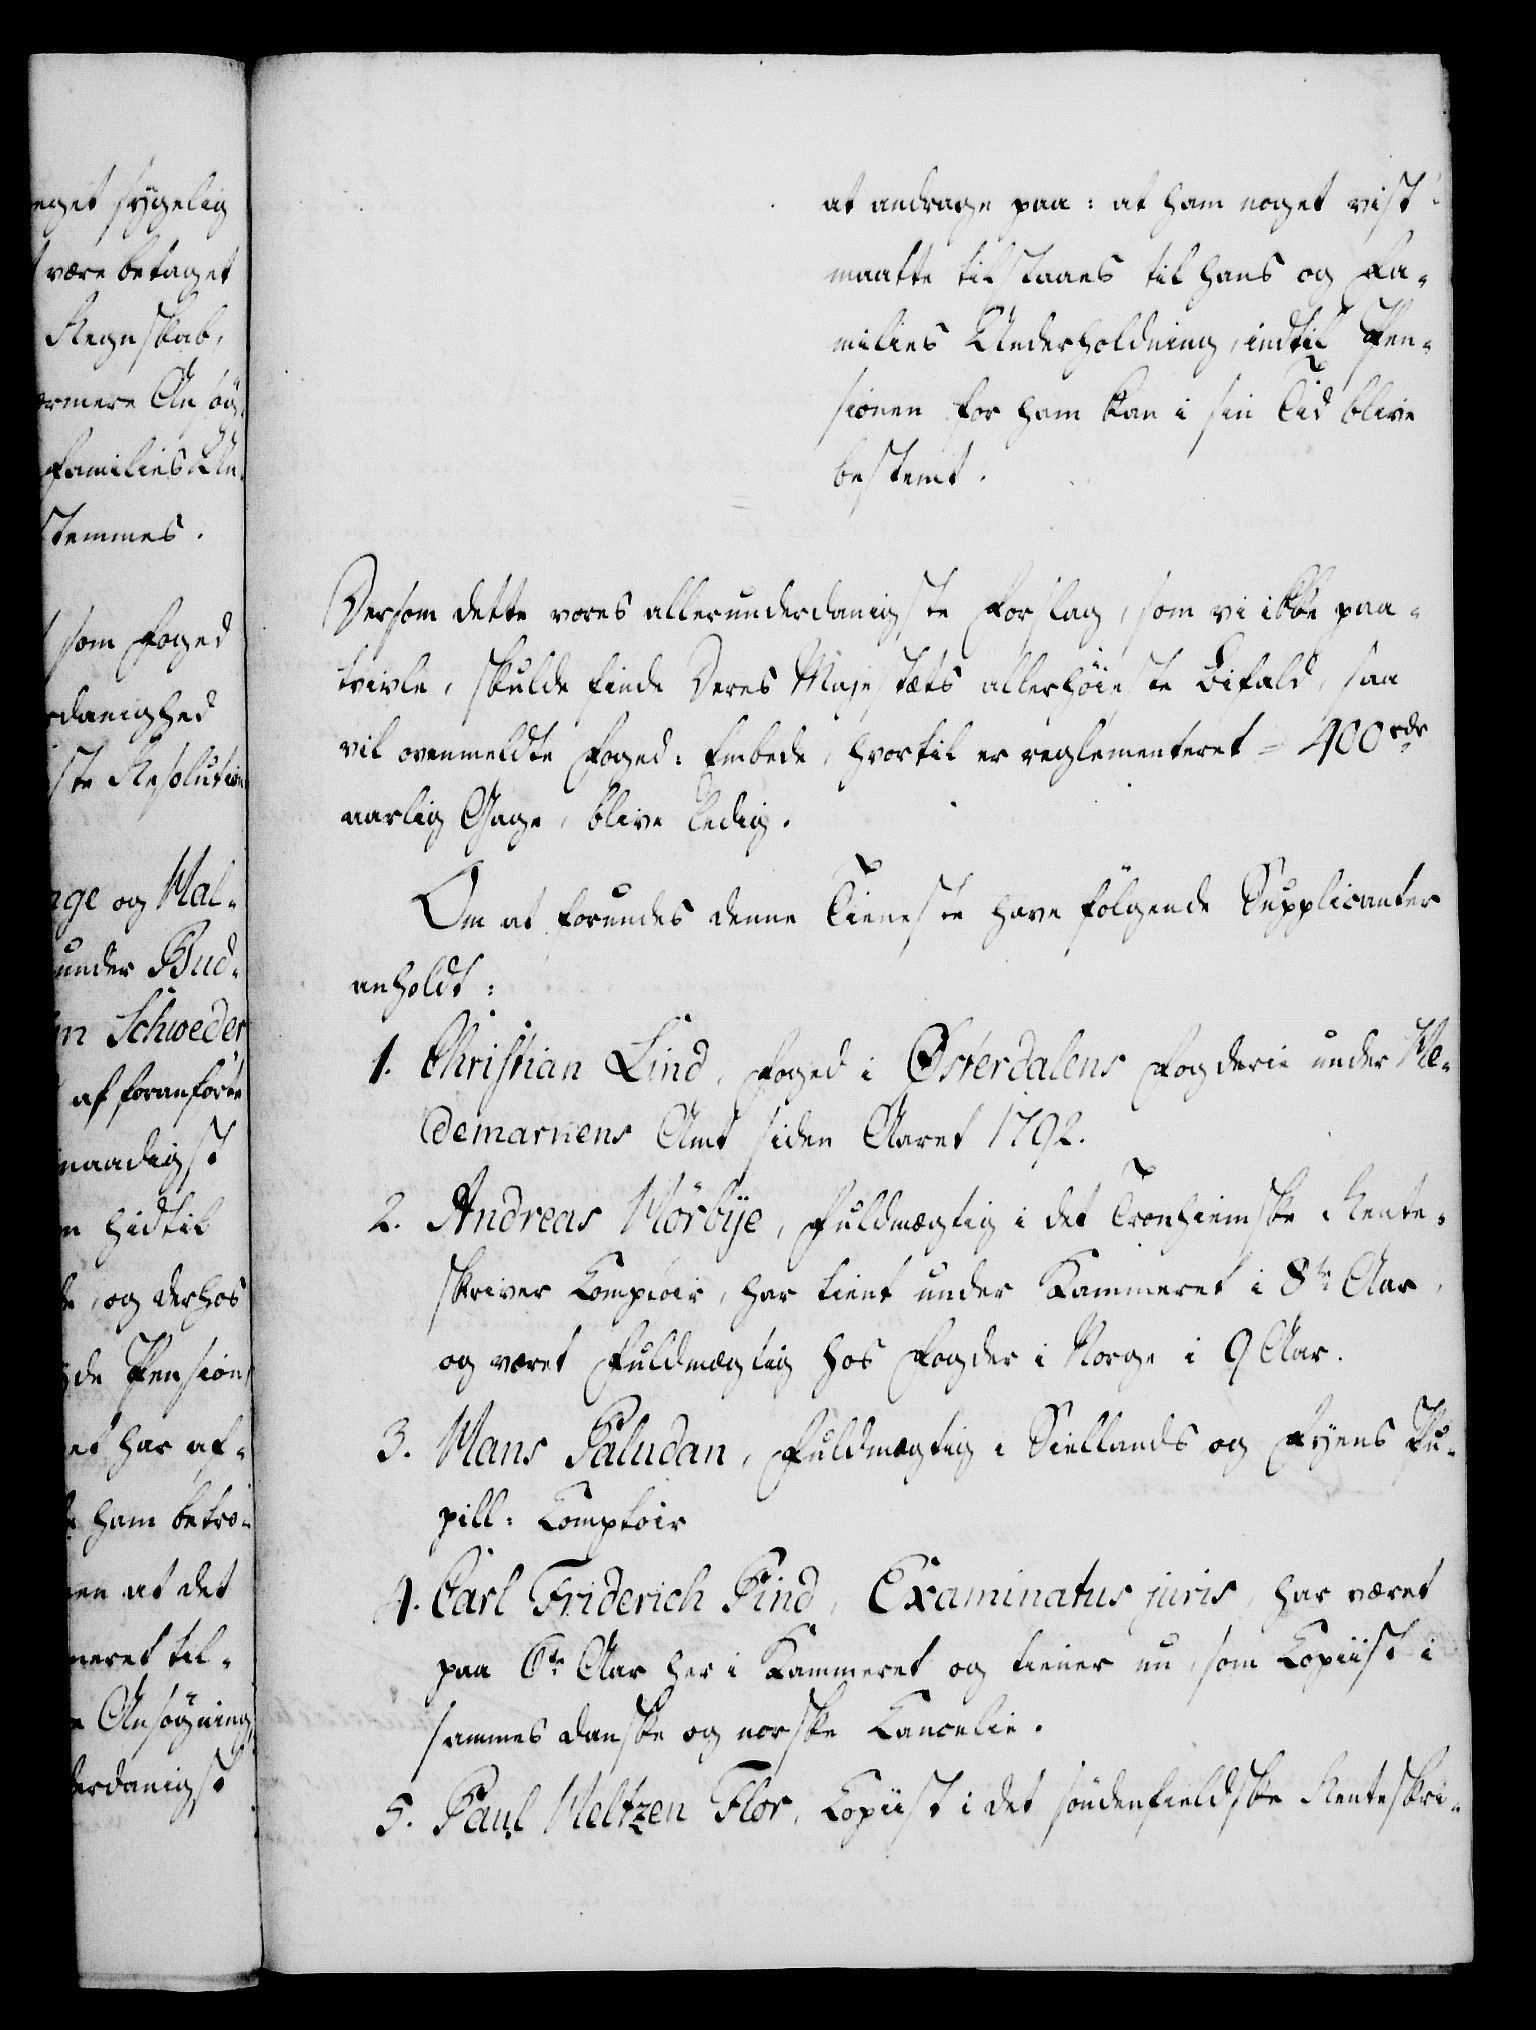 eget sygelig
være betaget
Regnskab,
ermere Ansøg-
Families Un-
stemmes.
som Foged
rdanighed
ste Resolution
nge og Hal-
under Bud-
Schweder
af foranførte
naadigst
hidtil
og derhos
de Pension,
et har af-
ham betro-
en at det
meret til-
Ansøgning
derdanigst
at andrage paa: at ham noget vist
maatte tilstaaes til hans og Fa-
milies Underholdning, indtil Pen-
sionen for ham kan i sin Tid blive
bestemt.
Dersom dette vores allerunderdanigste Forslag, som vi ikke paa-
tvivle, skulde finde Deres Majestæts allerhøieste Bifald, saa
vil ovenmeldte Foged: Embede, hvortil er reglementeret = 400 rdr
aarlig Gage, blive ledig.
Om at forundes denne Tieneste have følgende Supplicanter
anholdt:
1. Christian Lind, Foged i Østerdalens Fogderie under He-
demarkens Amt siden Aaret 1792.
2. Andreas Mörbÿe, Fuldmægtig i det Tronhiemske Rente-
skriver Comptoir, har tient under Kammeret i 8te Aar,
og været Fuldmægtig hos Fogder i Norge i 9 Aar.
3. Hans Paludan, Fuldmægtig i Siellands og Fyens Pu-
pill: Comptoir
4. Carl Friderich Pind, Examinatus juris, har været
paa 6te Aar her i Kammeret og tiener nu, som Copiist i
sammes danske og norske Cancelie.
5. Paul Heltzen Flor, Copiist i det søndenfieldske Renteskri-